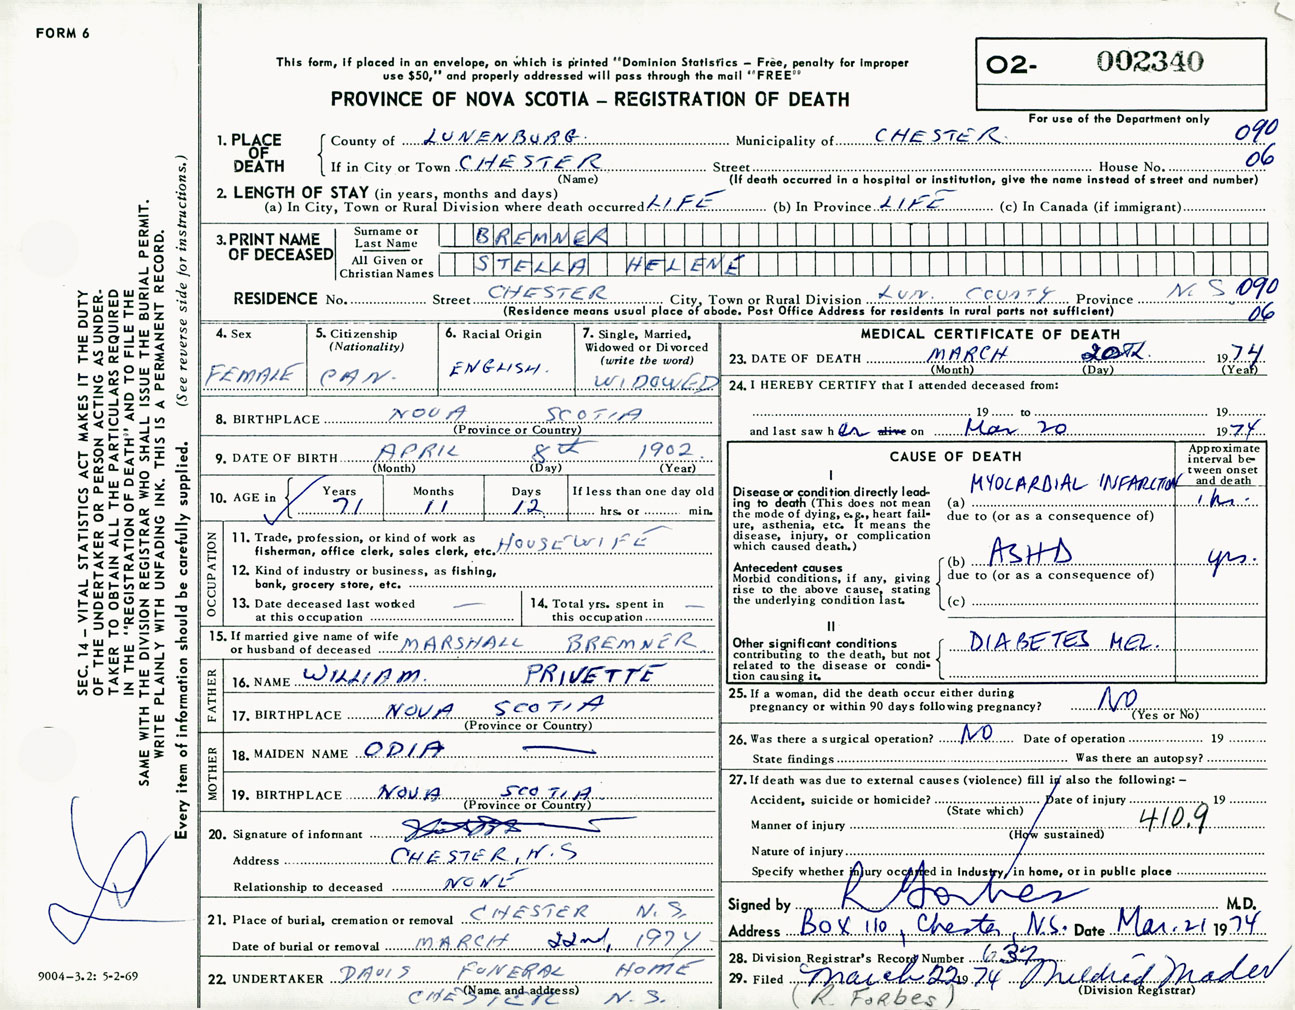 FORM 6
This form, if placed in an envelope, on which is printed "Dominion Statistics – Free, penalty for improper
use $50," and properly addressed will pass through the mail "FREE"
O2- 002340
PROVINCE OF NOVA SCOTIA – REGISTRATION OF DEATH
For use of the Department only
1. PLACE OF DEATH County of LUNENBURG. Municipality of CHESTER. 090
If in City or Town CHESTER Street House No. 06
(Name) (If death occurred in a hospital or institution, give the name instead of street and number)
2. LENGTH OF STAY (in years, months and days)
(a) In City, Town or Rural Division where death occurred LIFE (b) In Province LIFE (c) In Canada (if immigrant)
3. PRINT NAME OF DECEASED
Surname or Last Name BREMNER
All Given or Christian Names STELLA HELENE
RESIDENCE No. Street CHESTER City, Town or Rural Division LUN. COUNTY Province N.S 090
(Residence means usual place of abode. Post Office Address for residents in rural parts not sufficient) 06
4. Sex
FEMALE
5. Citizenship
(Nationality)
CAN.
6. Racial Origin
ENGLISH.
7. Single, Married,
Widowed or Divorced
(write the word)
WIDOWED
8. BIRTHPLACE NOVA SCOTIA
(Province or Country)
9. DATE OF BIRTH APRIL 8th 1902.
(Month) (Day) (Year)
10. AGE in Years Months Days If less than one day old
71 11 12. hrs. or min.
OCCUPATION
11. Trade, profession, or kind of work as
fisherman, office clerk, sales clerk, etc. HOUSEWIFE
12. Kind of industry or business, as fishing,
bank, grocery store, etc.
13. Date deceased last worked
at this occupation —
14. Total yrs. spent in
this occupation —
15. If married give name of wife
or husband of deceased MARSHALL BREMNER
FATHER
16. NAME WILLIAM. PRIVETTE
17. BIRTHPLACE NOVA SCOTIA
(Province or Country)
MOTHER
18. MAIDEN NAME ODIA —
19. BIRTHPLACE NOVA SCOTIA
(Province or Country)
20. Signature of informant
Address CHESTER, N.S
Relationship to deceased NONE
21. Place of burial, cremation or removal CHESTER N.S.
Date of burial or removal MARCH 22nd, 1974
22. UNDERTAKER DAVIS FUNERAL HOME
(Name and address)
CHESTER N.S.
MEDICAL CERTIFICATE OF DEATH
23. DATE OF DEATH MARCH 20th. 1974
(Month) (Day) (Year)
24. I HEREBY CERTIFY that I attended deceased from:
19 to 19
and last saw her alive on Mar 20 1974
CAUSE OF DEATH
Approximate
interval be-
tween onset
and death
I
Disease or condition directly lead-
ing to death (This does not mean
the mode of dying, e.g., heart fail-
ure, asthenia, etc. It means the
disease, injury, or complication
which caused death.)
(a) MYOCARDIAL INFARCTION 1 hr.
due to (or as a consequence of)
Antecedent causes
Morbid conditions, if any, giving
rise to the above cause, stating
the underlying condition last.
(b) ASHD yrs.
due to (or as a consequence of)
(c)
II
Other significant conditions
contributing to the death, but not
related to the disease or condi-
tion causing it.
DIABETES MEL.
25. If a woman, did the death occur either during
pregnancy or within 90 days following pregnancy? NO
(Yes or No)
26. Was there a surgical operation? NO Date of operation 19
State findings Was there an autopsy?
27. If death was due to external causes (violence) fill in also the following: –
Accident, suicide or homicide? Date of injury 19
(State which)
Manner of injury 410.9
(How sustained)
Nature of injury
Specify whether injury occurred in Industry, in home, or in public place
Signed by R Forbes M.D.
Address Box 110, Chester, N.S. Date Mar. 21 1974
28. Division Registrar's Record Number 37
29. Filed March 22 1974 Mildred Mader
(Division Registrar)
(R. FORBES)
SEC. 14 – VITAL STATISTICS ACT MAKES IT THE DUTY
OF THE UNDERTAKER OR PERSON ACTING AS UNDER-
TAKER TO OBTAIN ALL THE PARTICULARS REQUIRED
IN THE "REGISTRATION OF DEATH" AND TO FILE THE
SAME WITH THE DIVISION REGISTRAR WHO SHALL ISSUE THE BURIAL PERMIT.
WRITE PLAINLY WITH UNFADING INK. THIS IS A PERMANENT RECORD.
Every item of information should be carefully supplied. (See reverse side for instructions.)
9004-3.2: 5-2-69